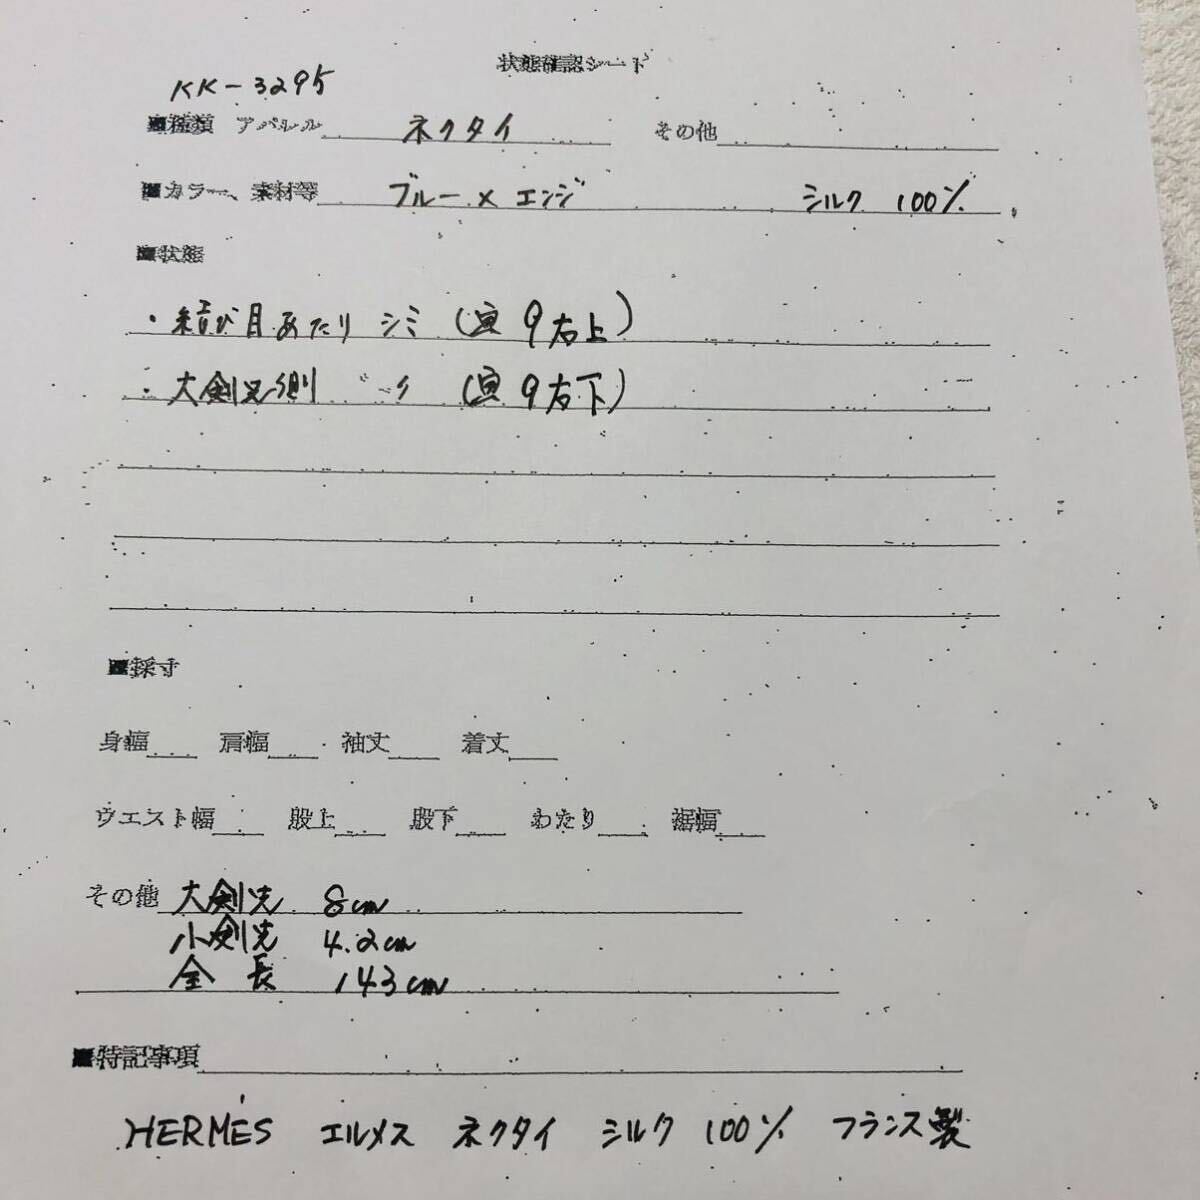 状態確認シート
KK-3295
■種類 アパレル ネクタイ その他
■カラー、素材等 ブルー×エンジ シルク 100%
■状態
・結び目あたり シミ (寅 9右上)
・大剣先側 (寅 9右下)
■採寸
身幅 肩幅 袖丈 着丈
ウエスト幅 股上 股下 わたり 裾幅
その他 大剣先 8cm
小剣先 4.2cm
全長 143cm
■特記事項
HERMÈS エルメス ネクタイ シルク 100% フランス製